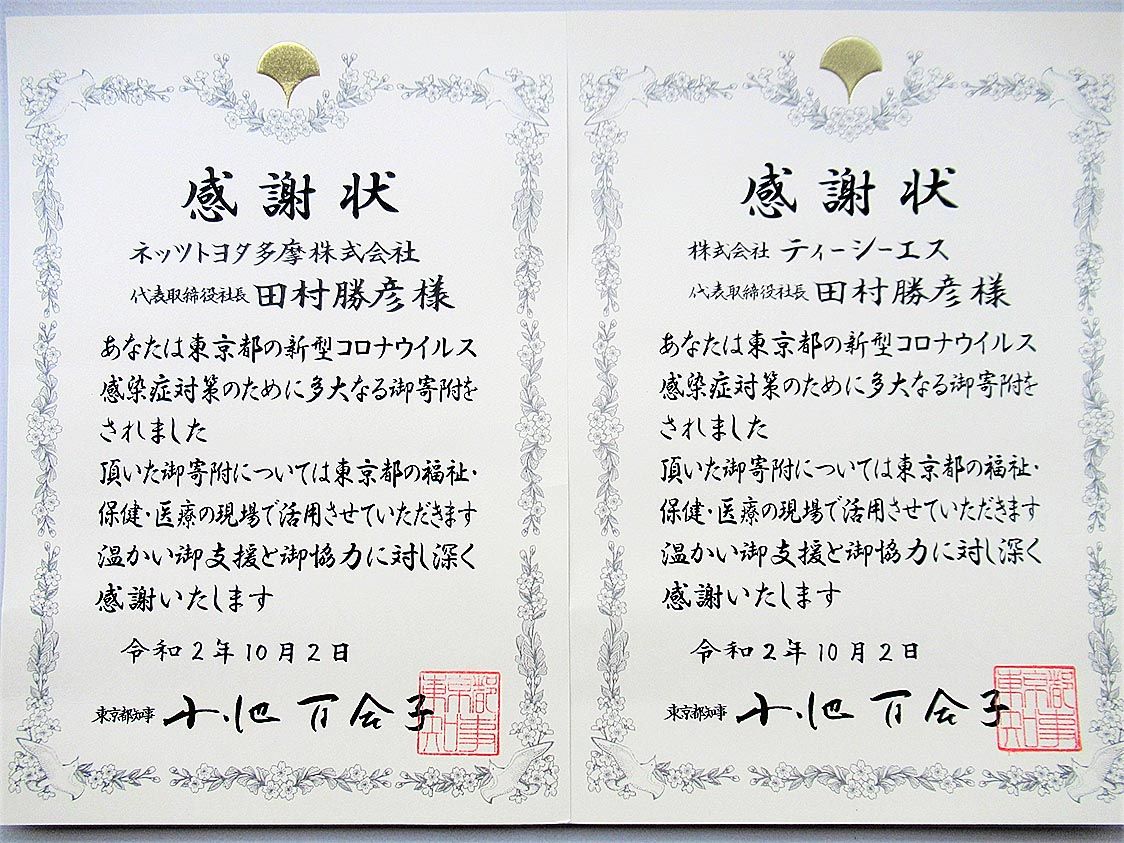 感謝状
ネッツトヨタ多摩株式会社
代表取締役社長 田村勝彦様
あなたは東京都の新型コロナウイルス
感染症対策のために多大なる御寄附を
されました
頂いた御寄附については東京都の福祉・
保健・医療の現場で活用させていただきます
温かい御支援と御協力に対し深く
感謝いたします
令和2年10月2日
東京都知事 小池百合子
東京都知事
感謝状
株式会社 ティーシーエス
代表取締役社長 田村勝彦様
あなたは東京都の新型コロナウイルス
感染症対策のために多大なる御寄附を
されました
頂いた御寄附については東京都の福祉・
保健・医療の現場で活用させていただきます
温かい御支援と御協力に対し深く
感謝いたします
令和2年10月2日
東京都知事 小池百合子
東京都知事